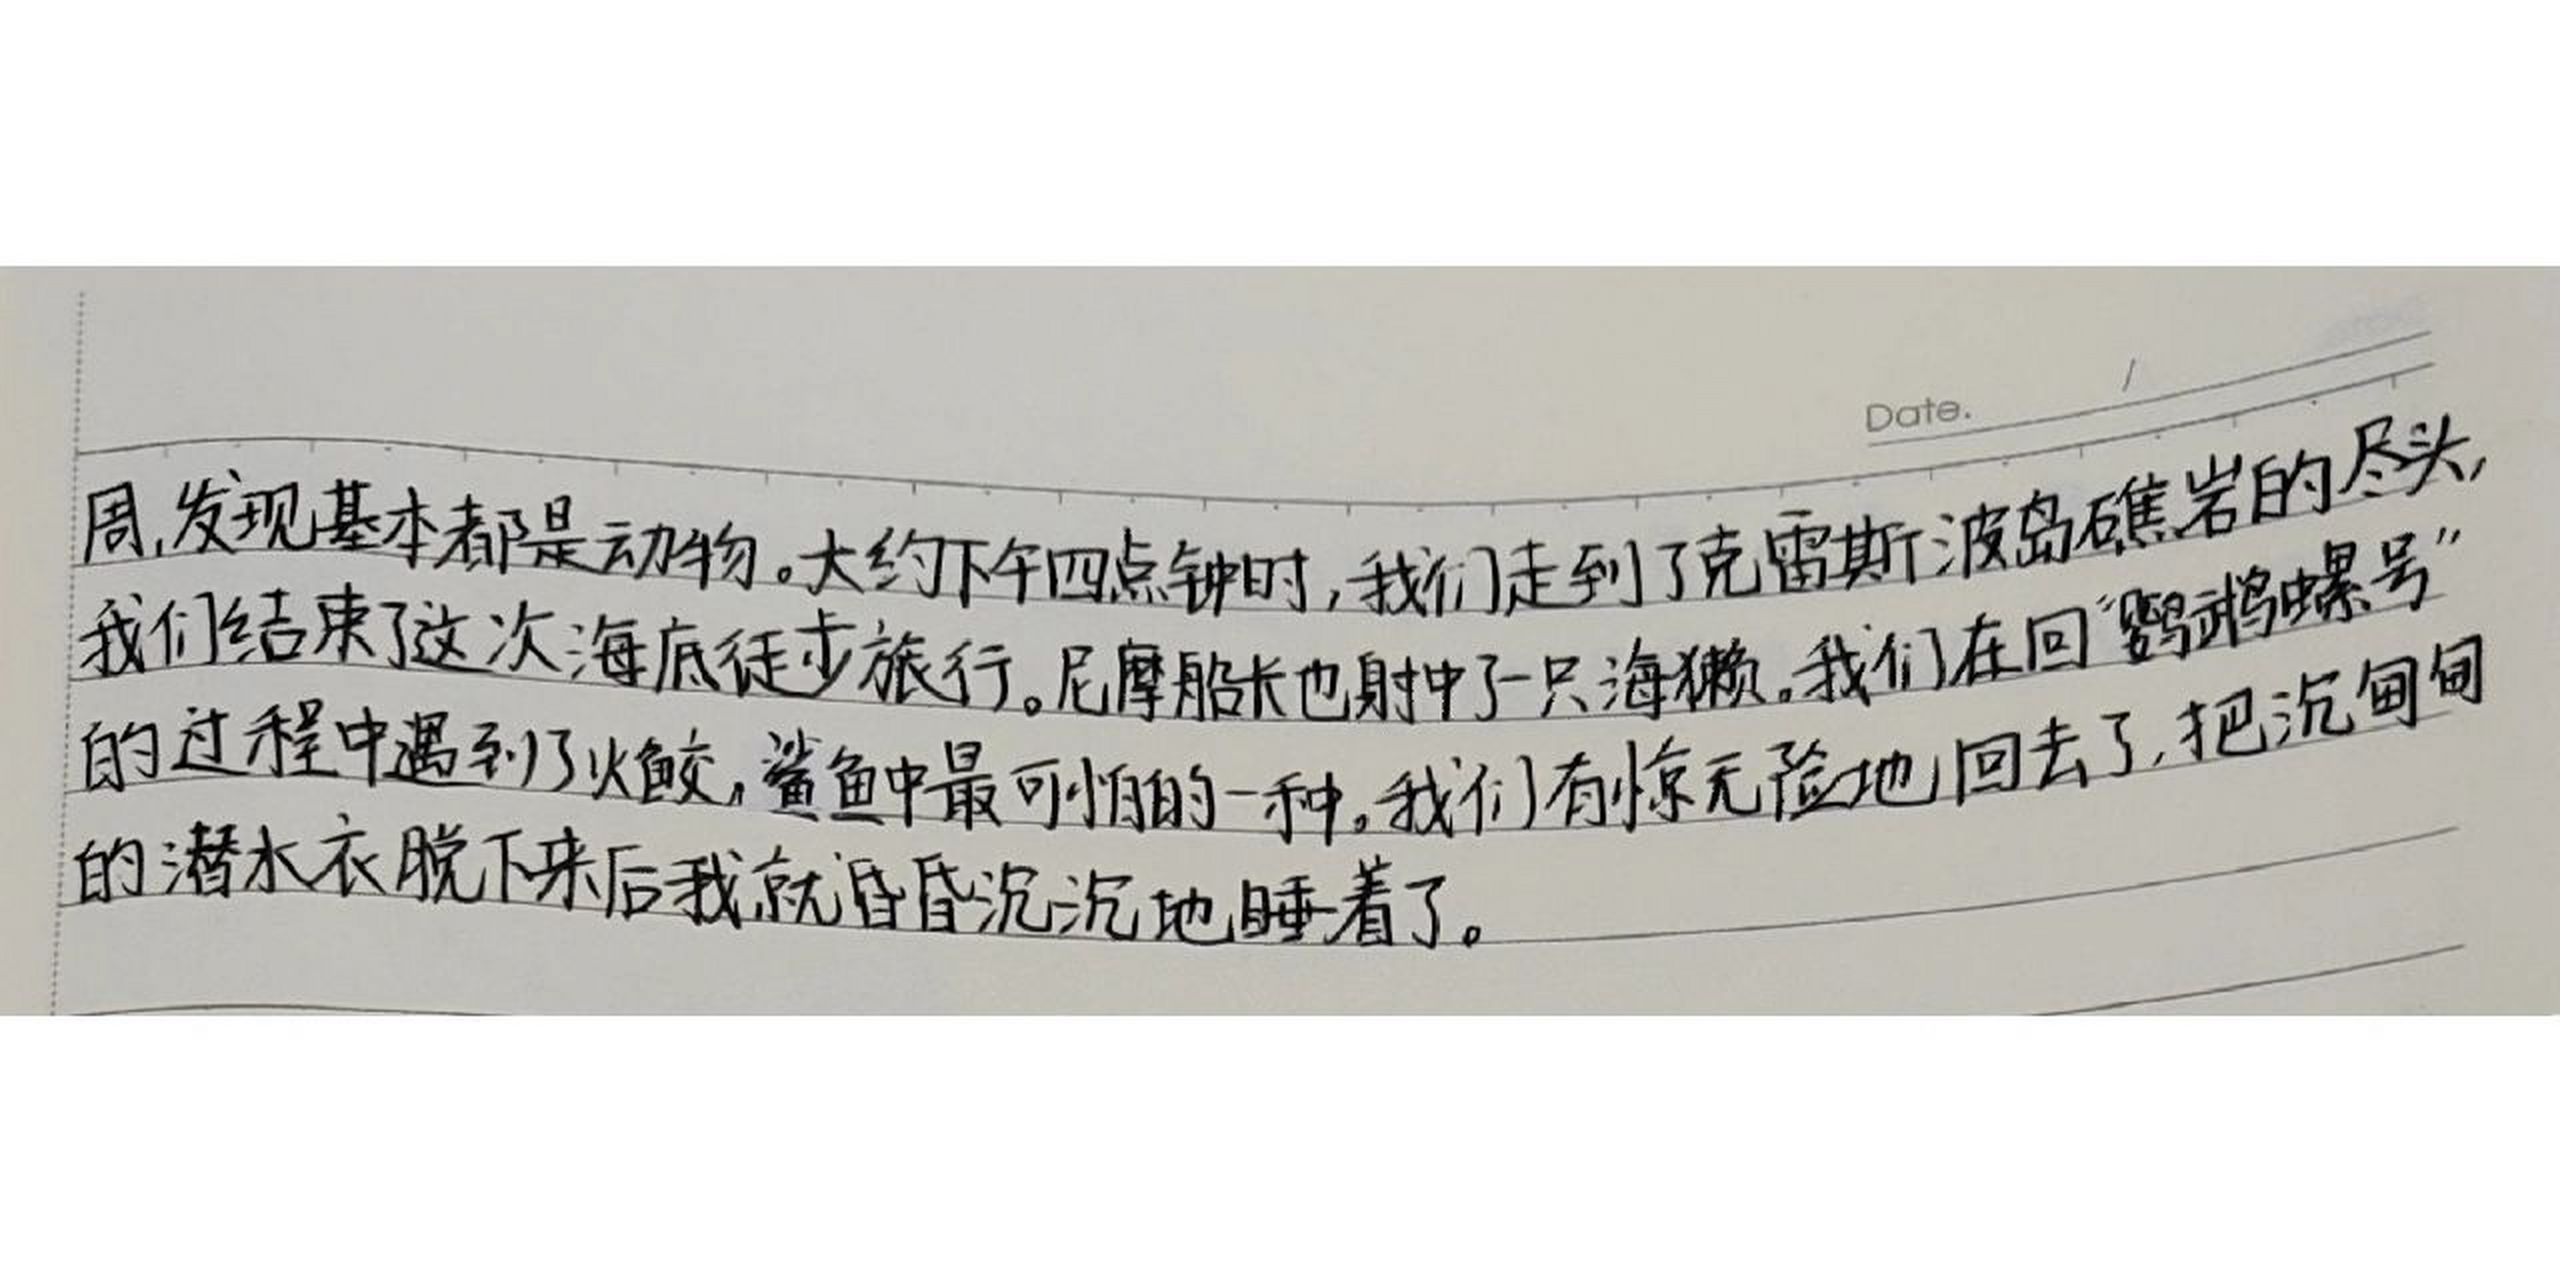 Date. /
周,发现基本都是动物。大约下午四点钟时,我们走到了克雷斯波岛礁岩的尽头,
我们结束了这次海底徒步旅行。尼摩船长也射中了一只海獭。我们在回“鹦鹉螺号”
的过程中遇到了火鲛,鲨鱼中最可怕的一种。我们有惊无险地回去了,把沉甸甸
的潜水衣脱下来后我就昏昏沉沉地睡着了。